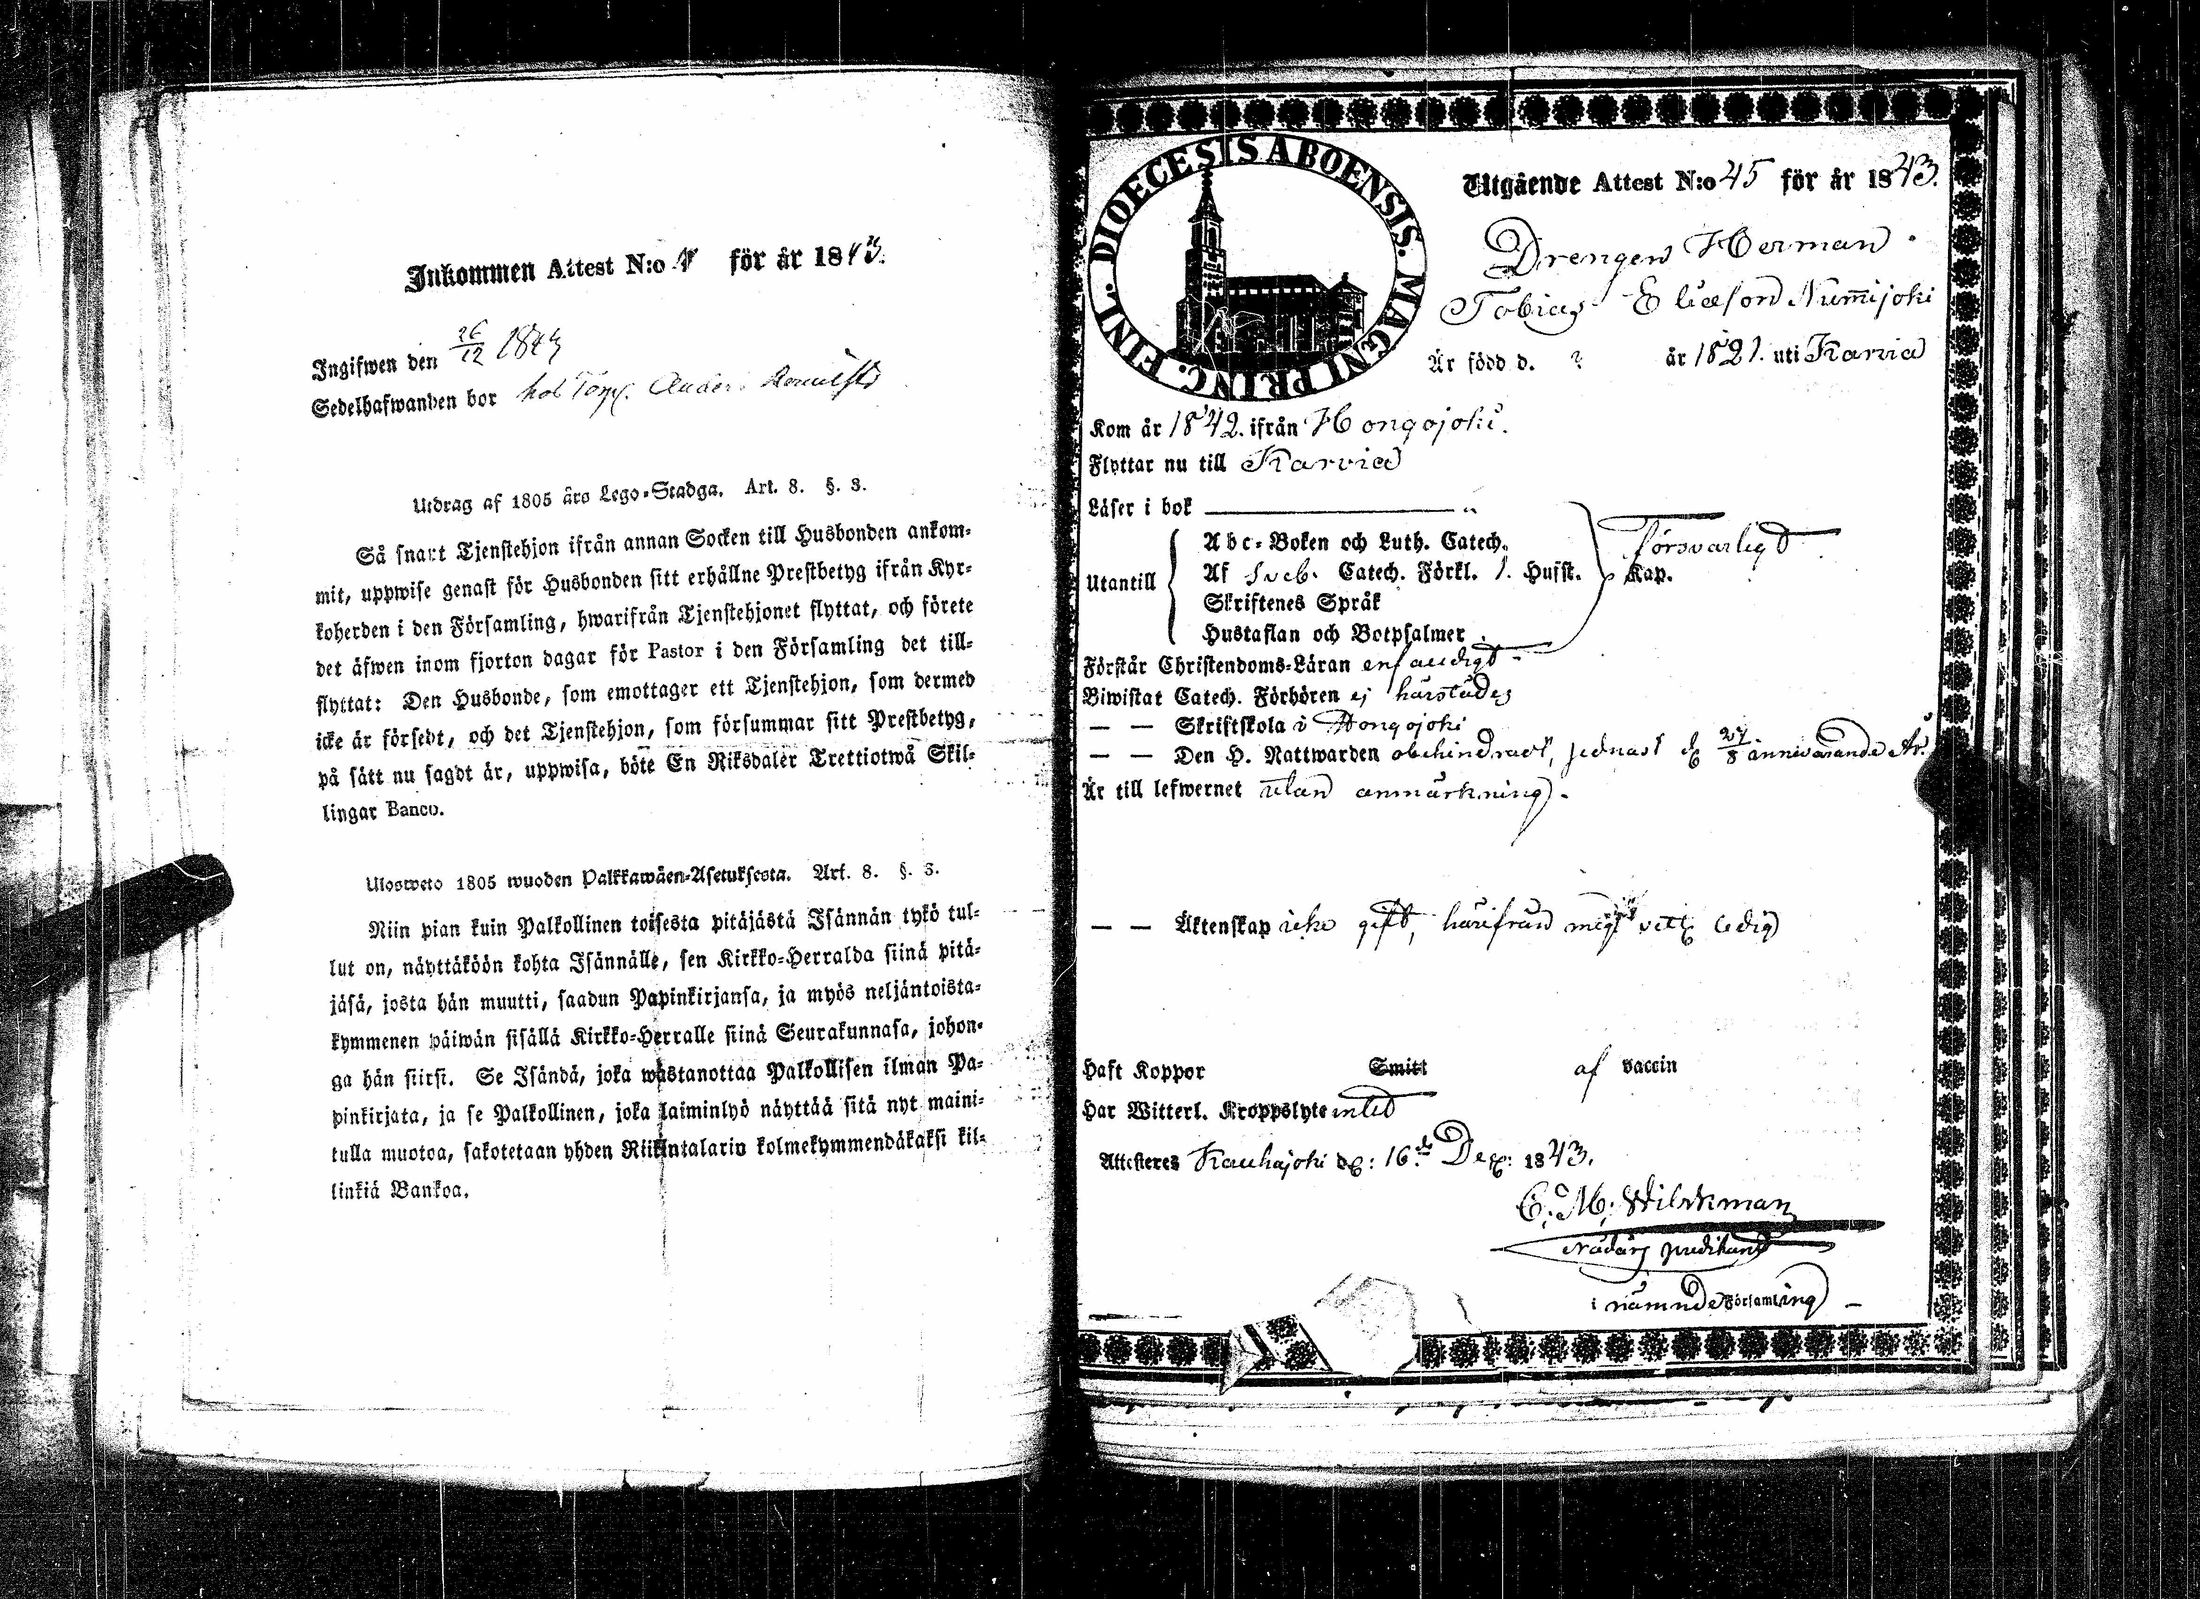 Inkommen Attest N:o för år 1843.
Ingifwen den 26/12 1843
Sedelhafwanden bor hos Torp. Anders
Utdrag af 1805 års Lego-Stadga. Art. 8. §. 3.
Så snart Tjenstehjon ifrån annan Socken till Husbonden ankom-
mit, uppwise genast för Husbonden sitt erhållne Prestbetyg ifrån Kyr-
koherden i den Församling, hwarifrån Tjenstehjonet flyttat, och förete
det äfwen inom fjorton dagar för Pastor i den Församling det till-
flyttat: Den Husbonde, som emottager ett Tjenstehjon, som dermed
icke är försedt, och det Tjenstehjon, som försummar sitt Prestbetyg,
på sätt nu sagdt är, uppwisa, böte En Riksdaler Trettiotwå Skil-
lingar Banco.
Ulosweto 1805 wuoden Palkkawäen-Asetuksesta. Art. 8. §. 3.
Niin pian kuin Palkollinen toisesta pitäjästä Isännän tykö tul-
lut on, näyttäköön kohta Isännälle, sen Kirkko-Herralda siinä pitä-
jäsä, josta hän muutti, saadun Papinkirjansa, ja myös neljäntoista-
kymmenen päiwän sisällä Kirkko-Herralle siinä Seurakunnasa, johon-
ga hän siirsi. Se Isändä, joka wastanottaa Palkollisen ilman Pa-
pinkirjata, ja se Palkollinen, joka laiminlyö näyttää sitä nyt maini-
tulla muotoa, sakotetaan yhden Riikintalarin kolmekymmendäkaksi kil-
linkiä Bankoa.
DIOECESIS ABOENSIS. MAGNI PRINC. FINL.
Utgående Attest N:o 45 för år 1843.
Drengen Herman
Tobias Eliasson Nummijoki
Är född d. ? år 1821. uti Karvia
Kom år 1842. ifrån Hongojoki.
Flyttar nu till Karvia
Läser i bok
Abc-Boken och Luth. Catech. försvarligt
Utantill Af Sveb. Catech. Förkl. 1. Hufst. Kap.
Skriftenes Språk
Hustaflan och Botpsalmer
Förstår Christendoms-Läran enfaldigt
Biwistat Catech. Förhören ej härstädes
— — Skriftskola i Hongojoki
— — Den H. Nattwarden obehindradt, sednast d. 27/8 innevarande År.
Är till lefwernet utan anmärkning.
— — Äktenskap icke gift, härifrån ledig
Haft Koppor Smitt af vaccin
Har Witterl. Kroppslyte intet
Attesteres Kauhajoki d.: 16 Dec: 1843.
C. M. Wilskman
Nådårs predikant
i nämnde Församling